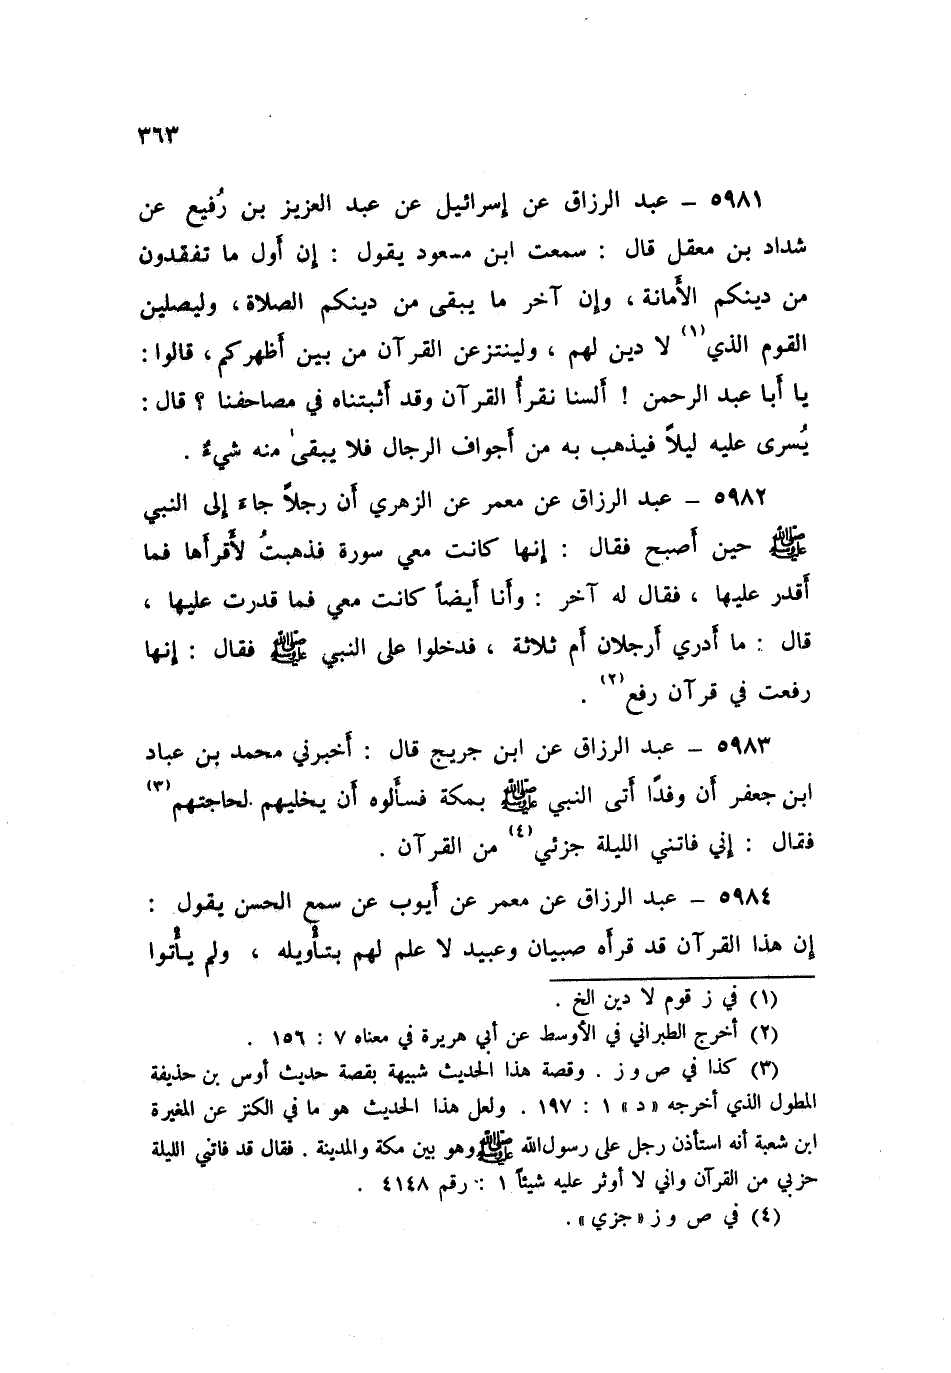 ٣٦٣
٥٩٨١ – عبد الرزاق عن إسرائيل عن عبد العزيز بن رُفيع عن
شداد بن معقل قال : سمعت ابن مسعود يقول : إن أول ما تفقدون
من دينكم الأمانة ، وإن آخر ما يبقى من دينكم الصلاة ، وليصلين
القوم الذي(١) لا دين لهم ، ولينتزعن القرآن من بين أظهركم ، قالوا :
يا أبا عبد الرحمن ! ألسنا نقرأُ القرآن وقد أثبتناه في مصاحفنا ؟ قال :
يُسرى عليه ليلاً فيذهب به من أجواف الرجال فلا يبقىٰ منه شيءٌ .
٥٩٨٢ – عبد الرزاق عن معمر عن الزهري أن رجلاً جاءَ إلى النبي
ﷺ حين أصبح فقال : إنها كانت معي سورة فذهبتُ لأقرأها فما
أقدر عليها ، فقال له آخر : وأنا أيضاً كانت معي فما قدرت عليها ،
قال : ما أدري أرجلان أم ثلاثة ، فدخلوا على النبي ﷺ فقال : إنها
رفعت في قرآن رفع(٢) .
٥٩٨٣ – عبد الرزاق عن ابن جريج قال : أخبرني محمد بن عباد
ابن جعفر أن وفدًا أتى النبي ﷺ بمكة فسألوه أن يخليهم لحاجتهم(٣)
فقال : إني فاتني الليلة جزئي(٤) من القرآن .
٥٩٨٤ – عبد الرزاق عن معمر عن أيوب عن سمع الحسن يقول :
إن هذا القرآن قد قرأه صبيان وعبيد لا علم لهم بتأويله ، ولم يأتوا
(١) في ز قوم لا دين الخ .
(٢) أخرج الطبراني في الأوسط عن أبي هريرة في معناه ٧ : ١٥٦ .
(٣) كذا في ص و ز . وقصة هذا الحديث شبيهة بقصة حديث أوس بن حذيفة
المطول الذي أخرجه «د» ١ : ١٩٧ . ولعل هذا الحديث هو ما في الكنز عن المغيرة
ابن شعبة أنه استأذن رجل على رسول الله ﷺ وهو بين مكة والمدينة . فقال قد فاتني الليلة
حزبي من القرآن واني لا أوثر عليه شيئاً ١ : رقم ٤١٤٨ .
(٤) في ص و ز «جزي» .